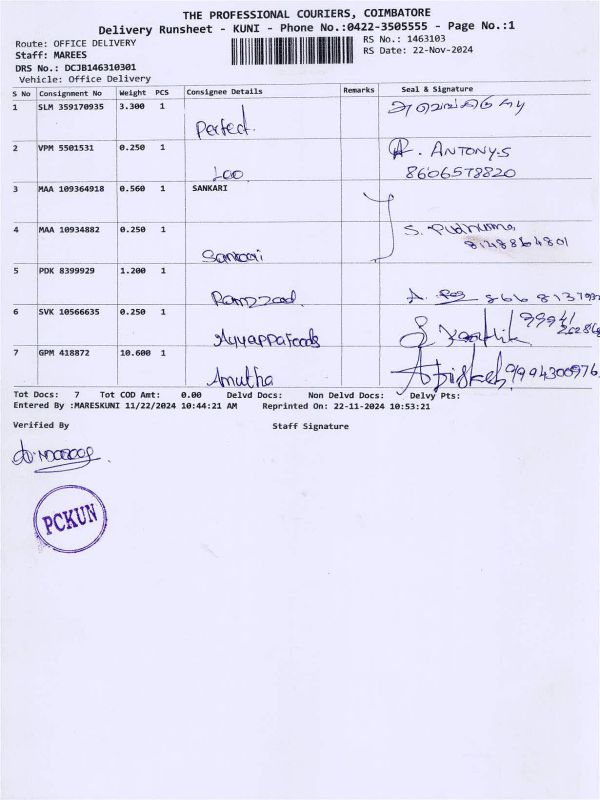 THE PROFESSIONAL COURIERS, COIMBATORE
Delivery Runsheet - KUNI - Phone No.:0422-3505555 - Page No.:1
Route: OFFICE DELIVERY
RS No.: 1463103
Staff: MAREES
RS Date: 22-Nov-2024
DRS No.: DCJB146310301
Vehicle: Office Delivery
S No Consignment No Weight PCS Consignee Details Remarks Seal & Signature
1 SLM 359170935 3.300 1 Perfect.
2 VPM 5501531 0.250 1 Lao ANTONY.S
8606578820
3 MAA 109364918 0.560 1 SANKARI
4 MAA 10934882 0.250 1 Sankari S.
8148864801
5 PDK 8399929 1.200 1 A.
6 SVK 10566635 0.250 1 Ayyappa Foods
7 GPM 418872 10.600 1 Amutha 9994300976
Tot Docs: 7 Tot COD Amt: 0.00 Delvd Docs: Non Delvd Docs: Delvy Pts:
Entered By :MARESKUNI 11/22/2024 10:44:21 AM Reprinted On: 22-11-2024 10:53:21
Verified By Staff Signature
PCKUN